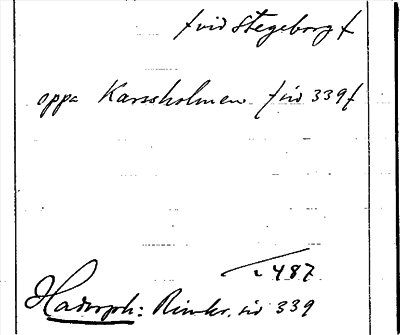 /vid Stegeborg/
oppa Karssholmen /sid 339/
1487
Hadorph: Rimkr. sid 339